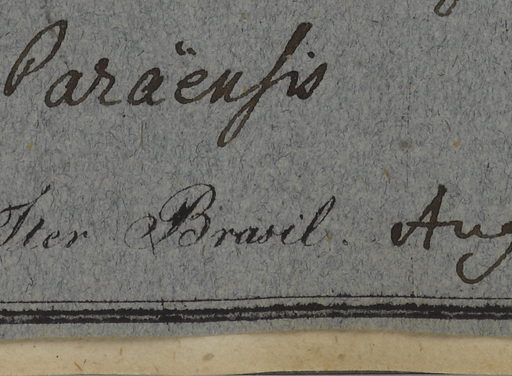 Paräensis
Iter Brasil. Aug